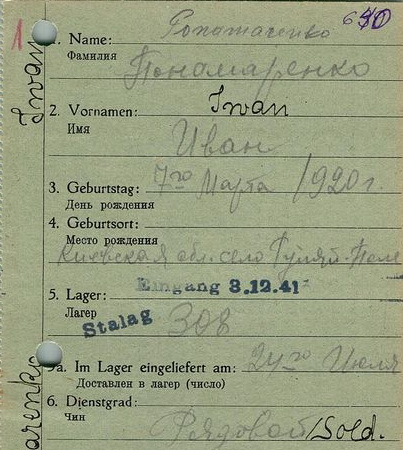 650
1
1. Name: Ponomarenko
Фамилия
Пономаренко
2. Vornamen: Iwan
Имя
Иван
3. Geburtstag: 7го Марта 1920 г.
День рождения
4. Geburtsort:
Место рождения
Киевская обл. село Гуляй-Поле
Eingang 8.12.41
5. Lager:
Лагер
Stalag 308
5a. Im Lager eingeliefert am: 24го Июля
Доставлен в лагер (число)
6. Dienstgrad:
Чин
Рядовой/Sold.
Iwan
arenko